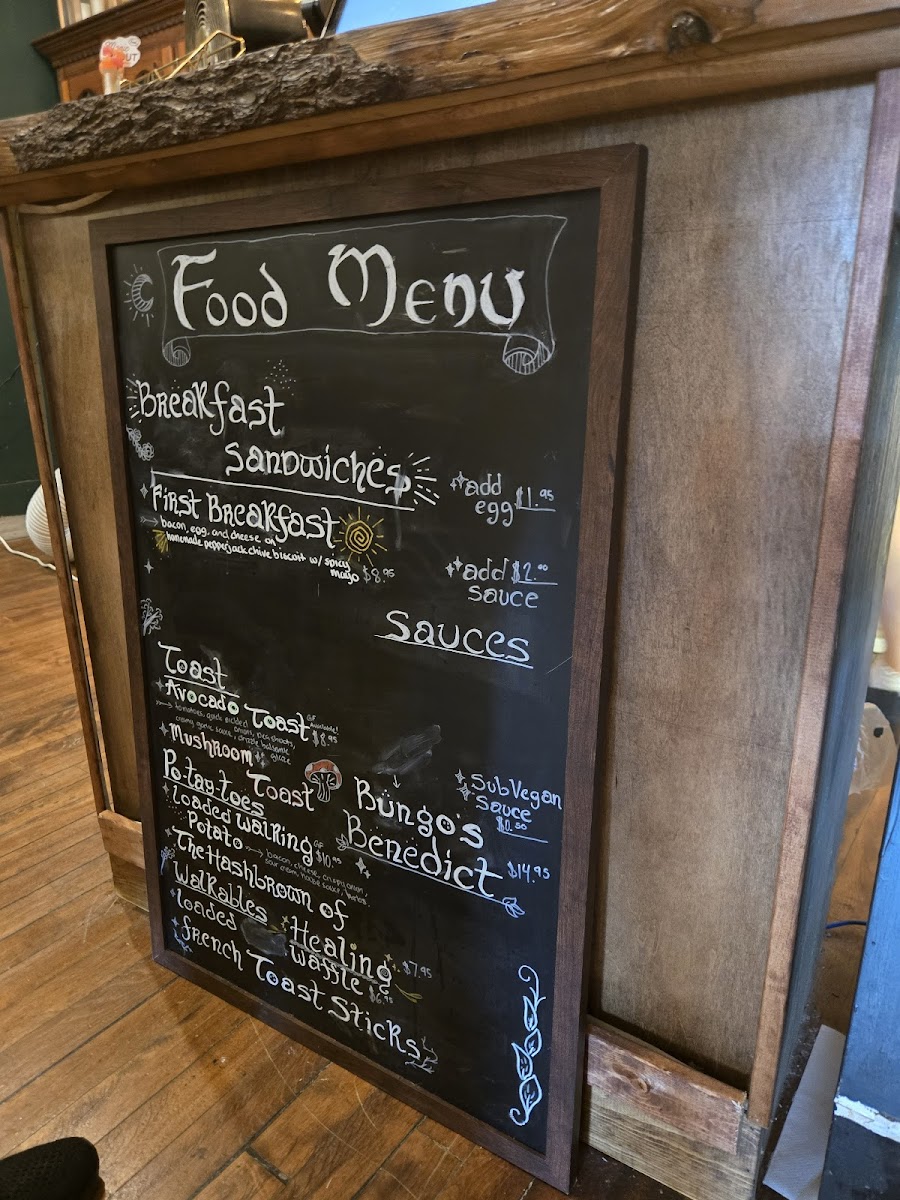 Food Menu
Breakfast
Sandwiches
First Breakfast
bacon, egg, and cheese on
homemade pepperjack chive biscuit w/ spicy
mayo $8.95
add
egg $1.95
add $2.00
sauce
Sauces
Toast
Avocado Toast GF Available!
tomatoes, quick pickled
onions, pea shoots, $8.95
creamy garlic sauce, drizzle balsamic
glaze
Mushroom
Toast
Po-tay-toes
Loaded Walking GF
Potato $10.95
bacon, cheese, crispy onion,
sour cream, house sauce, herbs
The Hashbrown of
Healing $7.95
Walkables
Loaded
Waffle $6.95
French Toast Sticks
Bungo's
Benedict $14.95
Sub Vegan
Sauce
$0.50